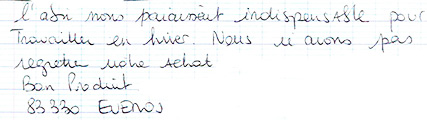 l'abri nous paraissait indispensable pour
Travailler en hiver. Nous n'avons pas
regretter notre Achat
Bon Produit
83330 EVENOS